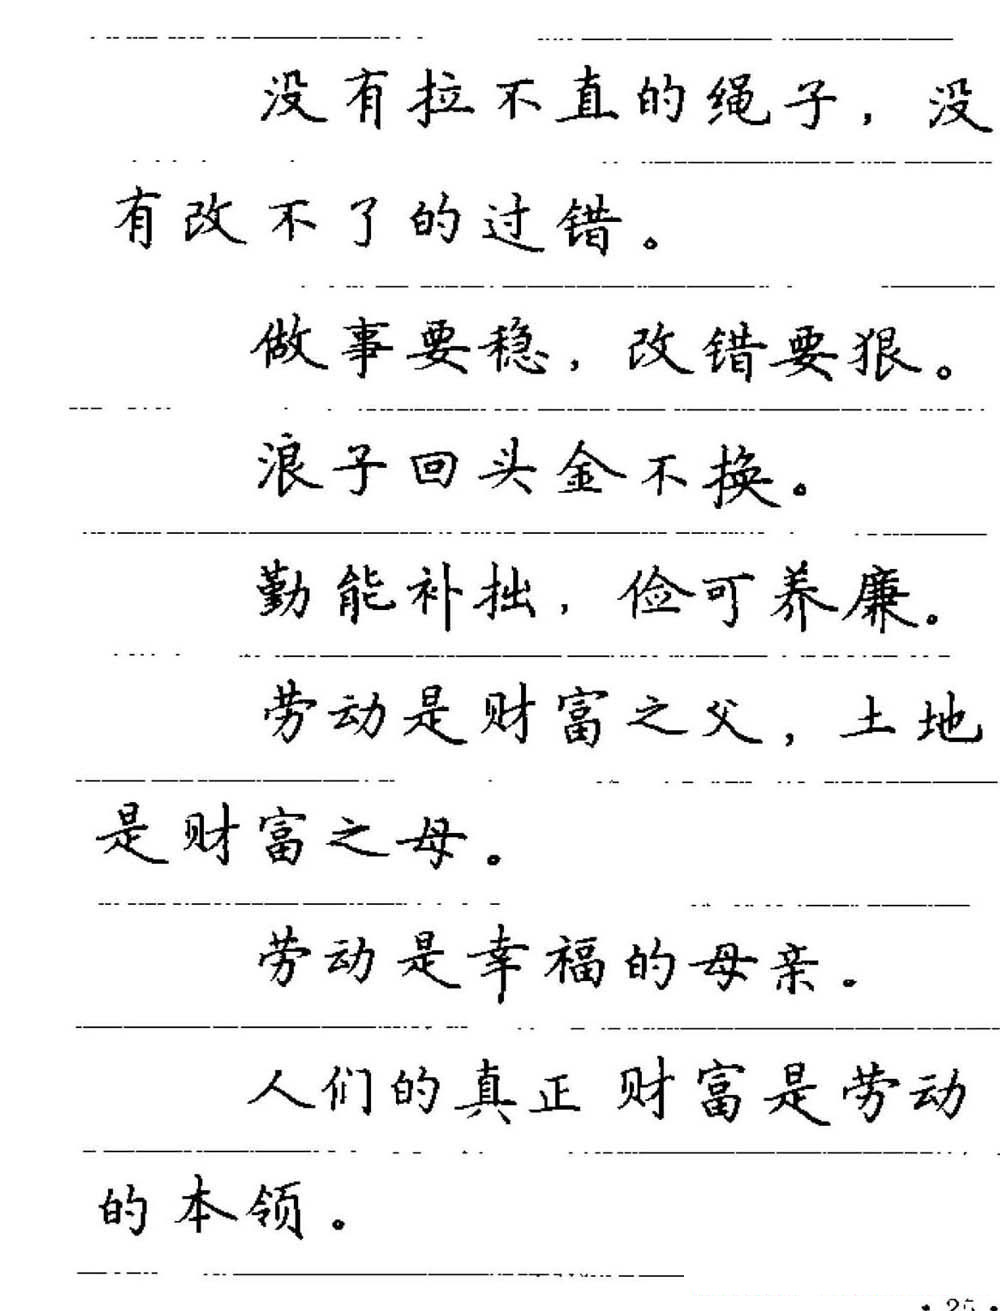 没有拉不直的绳子，没
有改不了的过错。
做事要稳，改错要狠。
浪子回头金不换。
勤能补拙，俭可养廉。
劳动是财富之父，土地
是财富之母。
劳动是幸福的母亲。
人们的真正财富是劳动
的本领。
• 25 •